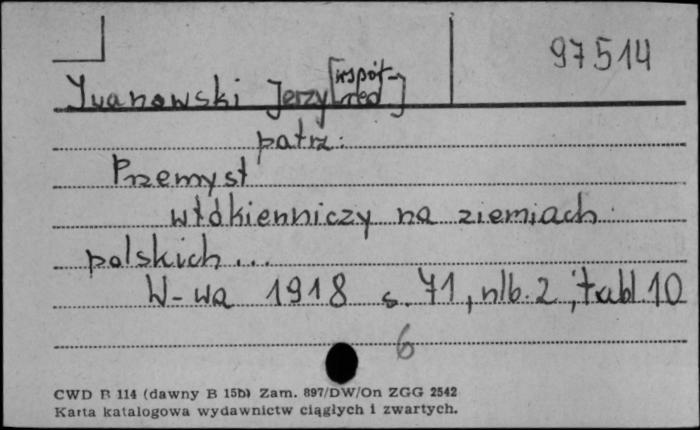 97514
Iwanowski Jerzy [współred]
patrz:
Przemysł
włókienniczy na ziemiach
polskich...
W-wa 1918 s. 71, nlb. 2, tabl. 10
6
CWD B 114 (dawny B 15b) Zam. 897/DW/On ZGG 2542
Karta katalogowa wydawnictw ciągłych i zwartych.